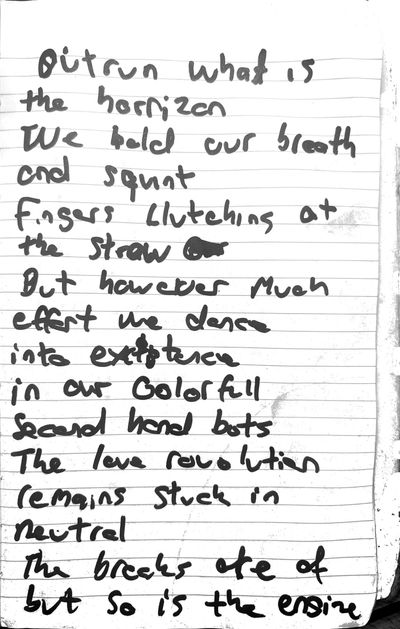 Outrun what is
the horrizon
We hold our breath
and squint
fingers clutching at
the straw
But however much
effort we dance
into existence
in our Colorfull
Second hand bots
The love revolution
remains stuck in
neutral
The breaks are of
but so is the engine